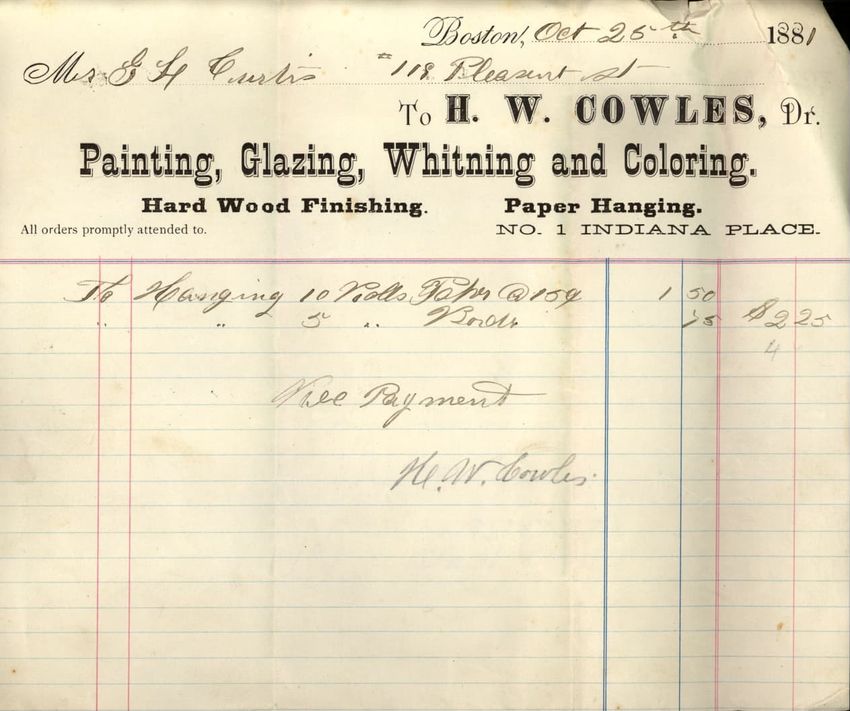 Boston, Oct 25th 1881
Mrs G H Curtis #118 Pleasant st
To H. W. COWLES, Dr.
Painting, Glazing, Whitning and Coloring.
Hard Wood Finishing. Paper Hanging.
All orders promptly attended to. NO. 1 INDIANA PLACE.
To Hanging 10 Rolls Paper @ 15¢ 1 50
" " 5 " Border 75 $2 25
4
Rec Payment
H. W. Cowles.